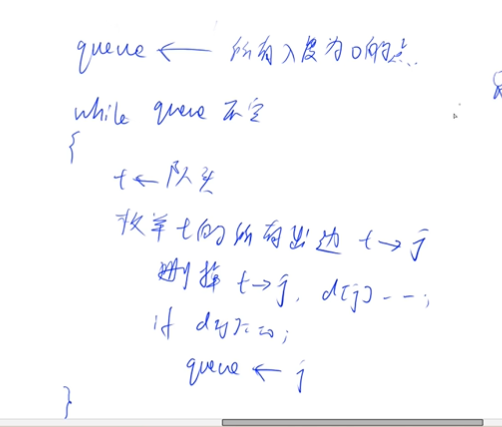 queue ← 所有入度为0的点
while queue 不空
{
t ← 队头
枚举t的所有出边 t → j
删掉 t → j, d[j]--;
if d[j]==0;
queue ← j
}